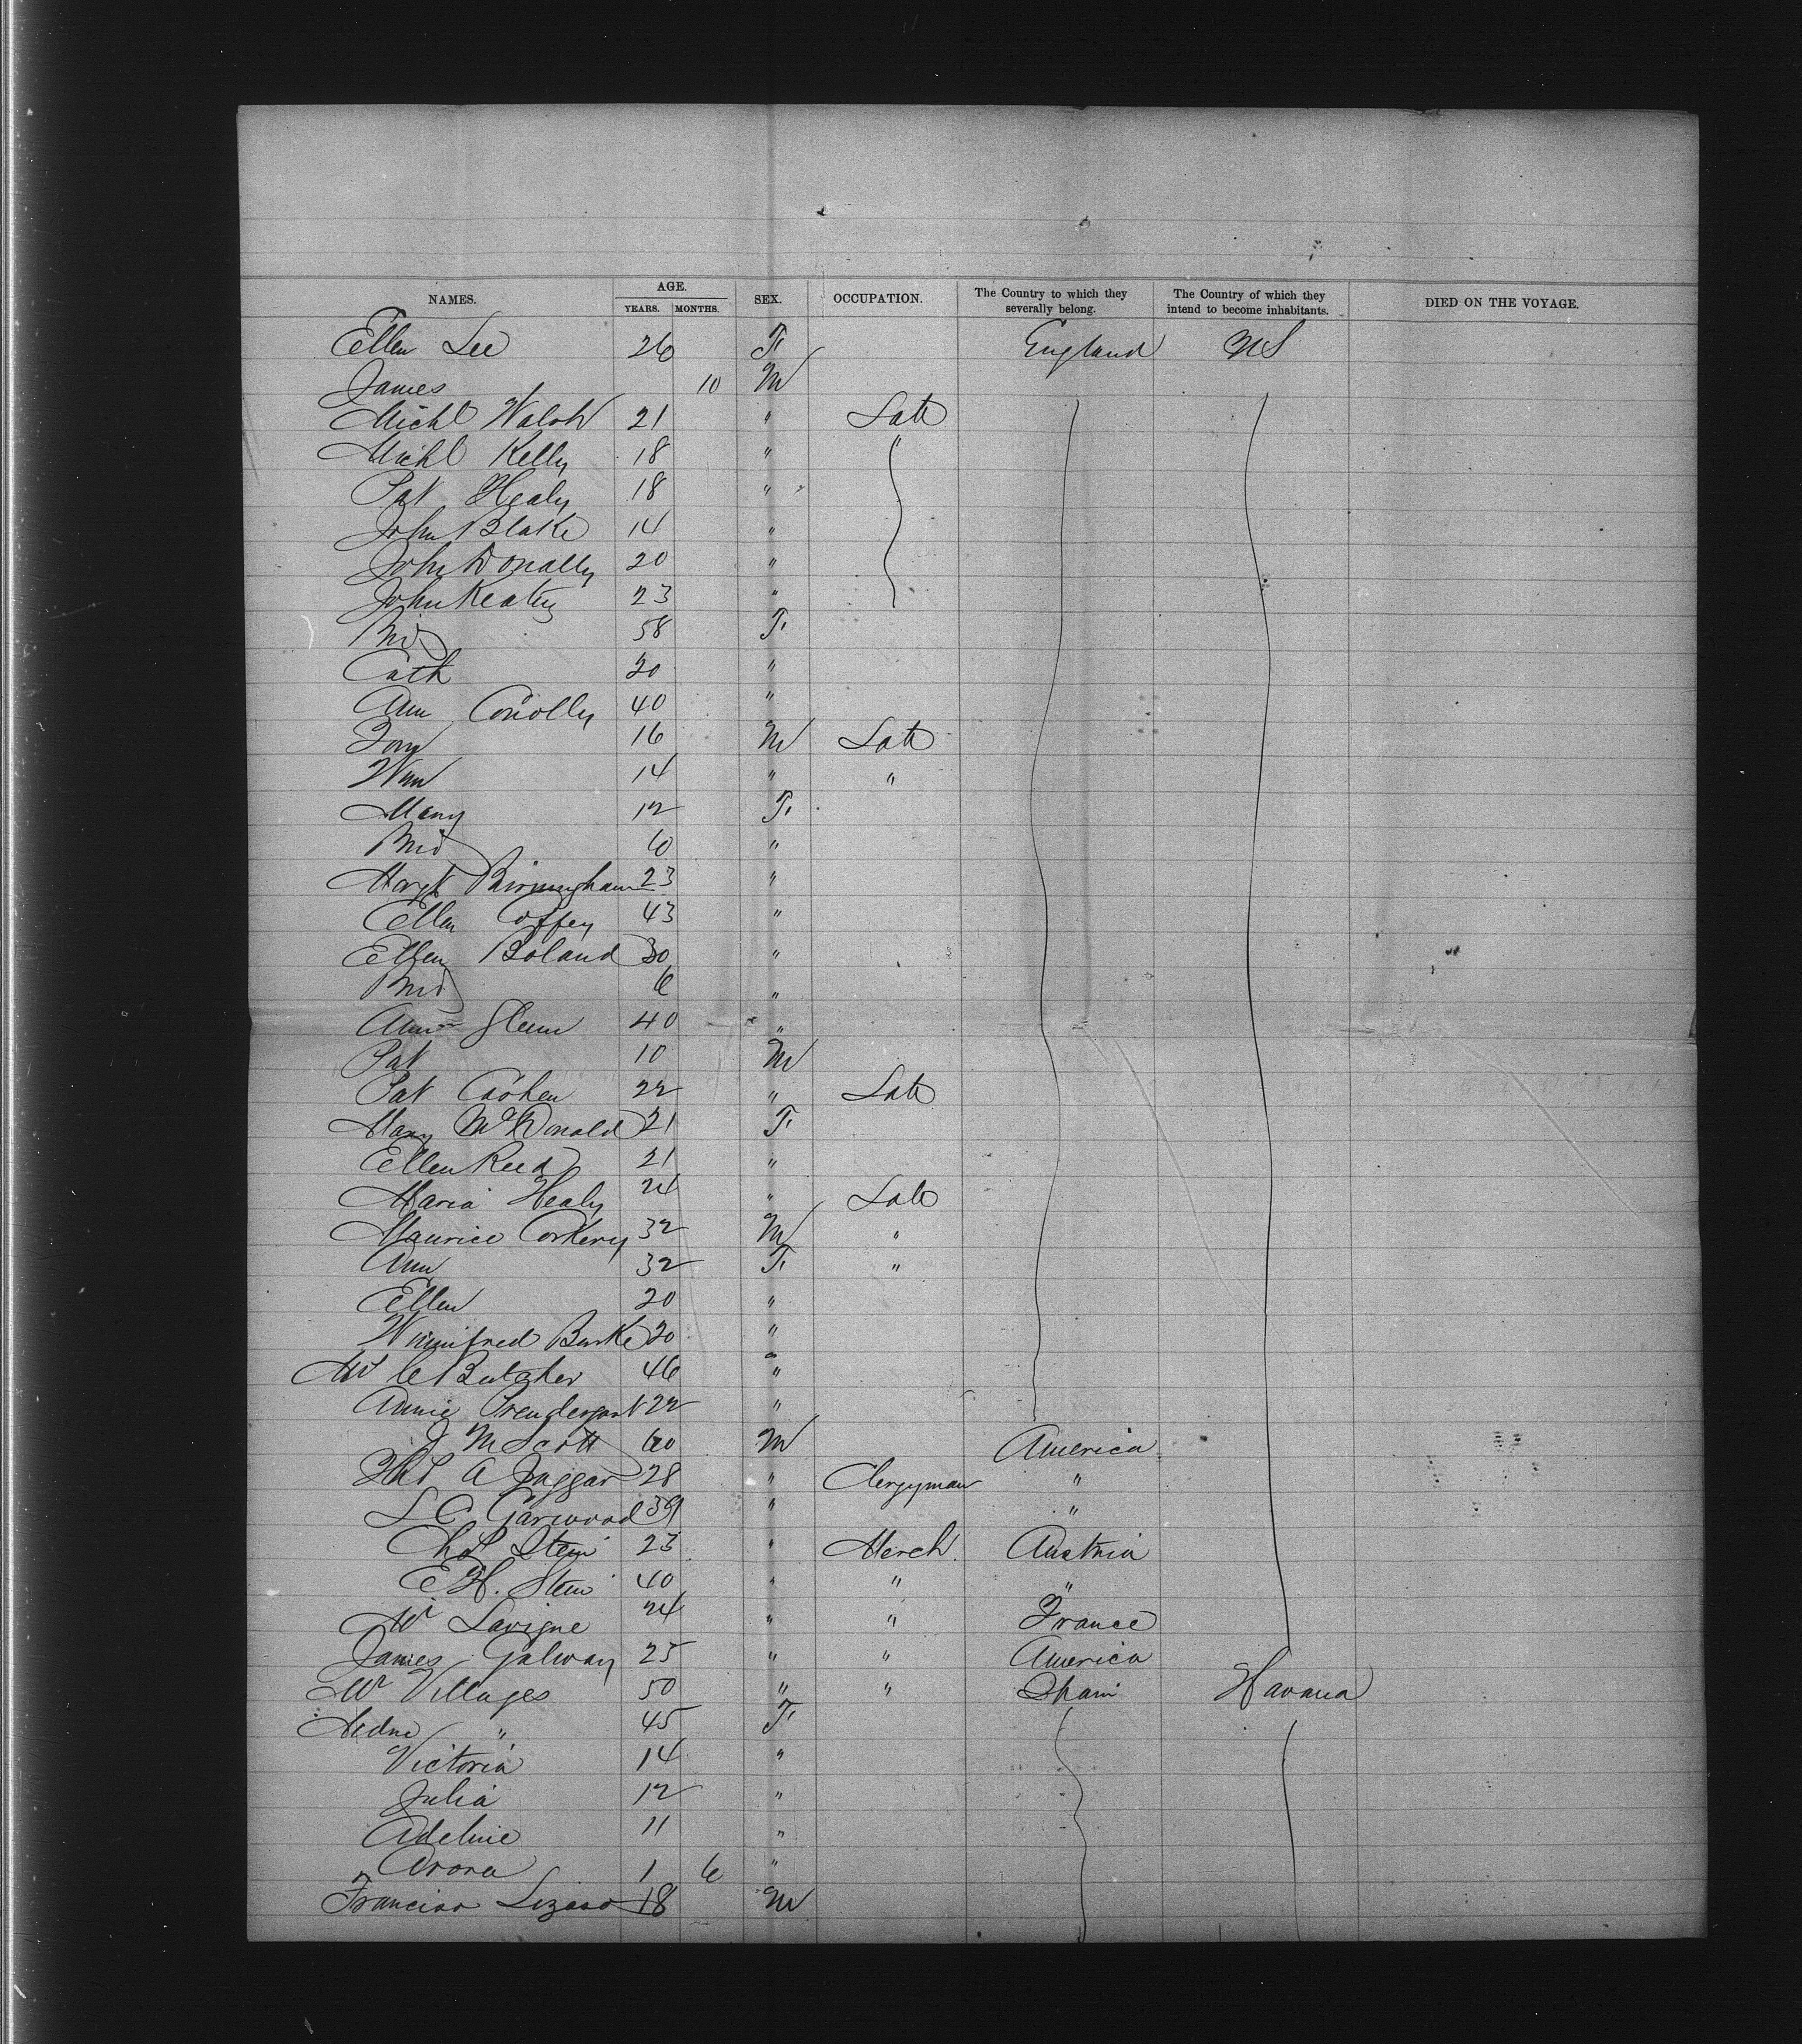 NAMES. AGE. SEX. OCCUPATION. The Country to which they severally belong. The Country of which they intend to become inhabitants. DIED ON THE VOYAGE.
YEARS. MONTHS.
Ellen Lee 26 F. England US
James 10 M
Michl Walsh 21 " Lab
Michl Kelly 18 " "
Pat Healy 18 "
John Blake 14 "
John Donally 20 "
John Keating 23 "
Brid 58 F.
Cath 20 "
Ann Conolly 40 "
Tom 16 M Lab
Wm 14 " "
Mary 12 F.
Brid 10 "
Margt Birmingham 23 "
Ellen Coffey 43 "
Ellen Boland 30 "
Brid 6 "
Ann Glenn 40 "
Pat 10 M
Pat 22 " Lab
Mary McDonald 21 F.
Ellen Reed 21 "
Maria Healy 24 " Lab
Maurice Corkery 32 M "
Ann 32 F. "
Ellen 20 "
Winnifred Burke 20 "
C Butcher 46 "
Annie Prendergast 22 "
J M Scott 60 M America
Thos A Jaggar 28 " Clergyman "
L C Garwood 39 " "
Chas Stein 23 " Merch. Austria
E H. Stein 40 " " "
Mr Lavigne 24 " " France
James Galway 25 " " America
Mr Villages 50 " " Spain Havana
Mdme " 45 F.
Victoria 14 "
Julia 12 "
Adeline 11 "
Arora 1 6 "
Francisco Lizaso 18 M